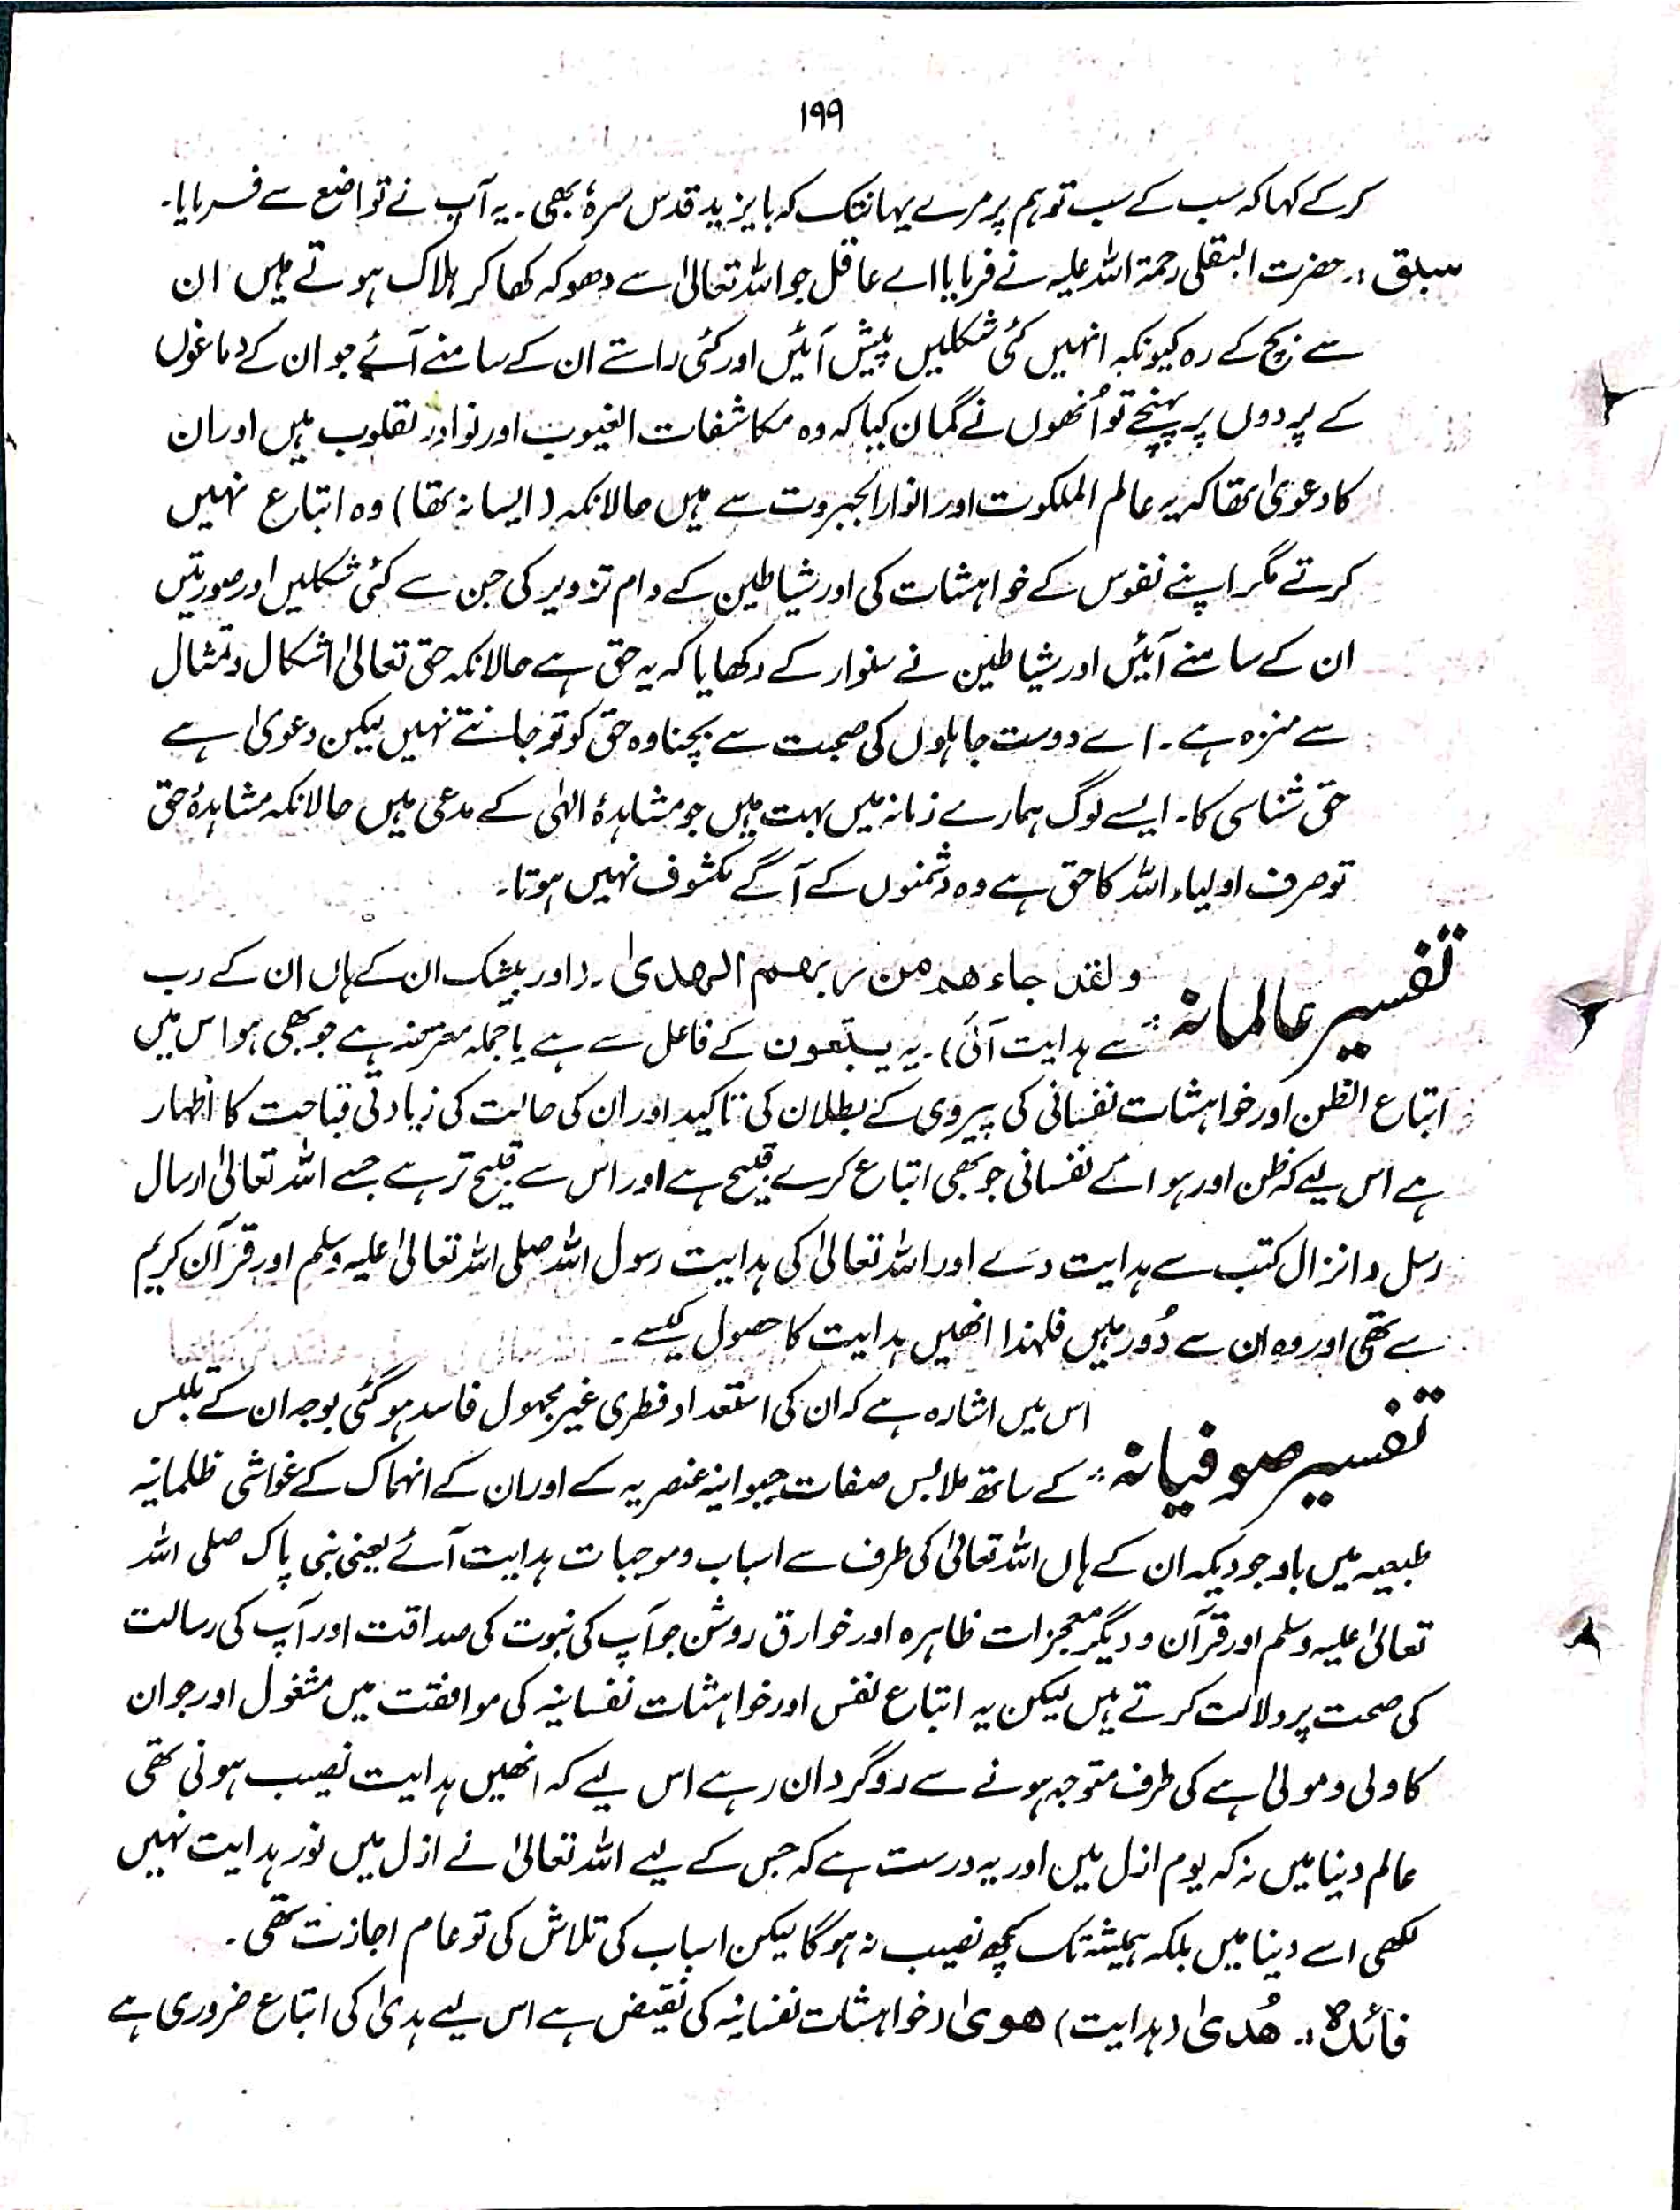 ۱۹۹
کر کے کہا کہ سب کے سب تو ہم پر مرے یہانتک کہ بایزید قدس سرہٗ بھی ۔ یہ آپ نے تواضع سے فرمایا۔
سبق :۔ حضرت البقلی رحمۃ اللہ علیہ نے فرمایا اے عاقل جو اللہ تعالیٰ سے دھوکہ کھا کر ہلاک ہوتے ہیں ان
سے بچ کے رہ کیونکہ انہیں کئی شکلیں پیش آئیں اور کئی راستے ان کے سامنے آئے جو ان کے دماغوں
کے پردوں پر پہنچے تو اُنھوں نے گمان کیا کہ وہ مکاشفات الغیوب اور نوادر لقلوب ہیں اور ان
کا دعویٰ تھا کہ یہ عالم الملکوت اور انوار الجبروت سے ہیں حالانکہ (ایسا نہ تھا) وہ اتباع نہیں
کرتے مگر اپنے نفوس کے خواہشات کی اور شیاطین کے دام تزویر کی جن سے کئی شکلیں اور صورتیں
ان کے سامنے آئیں اور شیاطین نے سنوار کے دکھایا کہ یہ حق ہے حالانکہ حق تعالیٰ اشکال و تمثال
سے منزہ ہے ۔ اے دوست جاہلوں کی صحبت سے بچنا وہ حق کو تو جانتے نہیں لیکن دعویٰ ہے
حق شناسی کا۔ ایسے لوگ ہمارے زمانہ میں بہت ہیں جو مشاہدۂ الہٰی کے مدعی ہیں حالانکہ مشاہدۂ حق
تو صرف اولیاء اللہ کا حق ہے وہ دشمنوں کے آگے مکشوف نہیں ہوتا۔
تفسیر عالمانہ :۔ ولقد جاءھم من ربھم الھدیٰ ۔ (اور بیشک ان کے ہاں ان کے رب
سے ہدایت آئی) ۔ یہ یتبعون کے فاعل سے ہے یا جملہ معترضہ ہے جو بھی ہو اس میں
اتباع الظن اور خواہشات نفسانی کی پیروی کے بطلان کی تاکید اور ان کی حالت کی زیادتی قباحت کا اظہار
ہے اس لیے کہ ظن اور ہوائے نفسانی جو بھی اتباع کرے قبیح ہے اور اس سے قبیح تر ہے جسے اللہ تعالیٰ ارسال
رسل و انزال کتب سے ہدایت دے اور اللہ تعالیٰ کی ہدایت رسول اللہ صلی اللہ تعالیٰ علیہ وسلم اور قرآن کریم
سے تھی اور وہ ان سے دُور ہیں فلہٰذا انھیں ہدایت کا حصول کیسے ۔
تفسیر صوفیانہ :۔ اس میں اشارہ ہے کہ ان کی استعداد فطری غیر مجہول فاسد ہوگئی بوجہ ان کے تلبس
کے ساتھ ملابس صفات حیوانیہ عنصریہ کے اور ان کے انہماک کے غواشی ظلمانیہ
طبیعیہ میں باوجودیکہ ان کے ہاں اللہ تعالیٰ کی طرف سے اسباب و موجبات ہدایت آئے یعنی نبی پاک صلی اللہ
تعالیٰ علیہ وسلم اور قرآن و دیگر معجزات ظاہرہ اور خوارق روشن جو آپ کی نبوت کی صداقت اور آپ کی رسالت
کی صحت پر دلالت کرتے ہیں لیکن یہ اتباع نفس اور خواہشات نفسانیہ کی موافقت میں مشغول اور جو ان
کا ولی و مولیٰ ہے کی طرف متوجہ ہونے سے روگردان رہے اس لیے کہ انھیں ہدایت نصیب ہونی تھی
عالم دنیا میں نہ کہ یوم ازل میں اور یہ درست ہے کہ جس کے لیے اللہ تعالیٰ نے ازل میں نور ہدایت نہیں
لکھی اسے دنیا میں بلکہ ہمیشہ تک کچھ نصیب نہ ہوگا لیکن اسباب کی تلاش کی تو عام اجازت تھی ۔
فائدہ :۔ ھُدیٰ (ہدایت) ھویٰ (خواہشات نفسانیہ کی نقیض ہے اس لیے ہدیٰ کی اتباع ضروری ہے